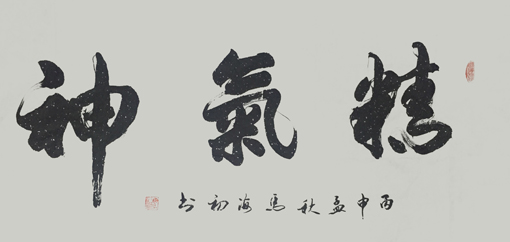 精氣神
丙申孟秋馬海初书